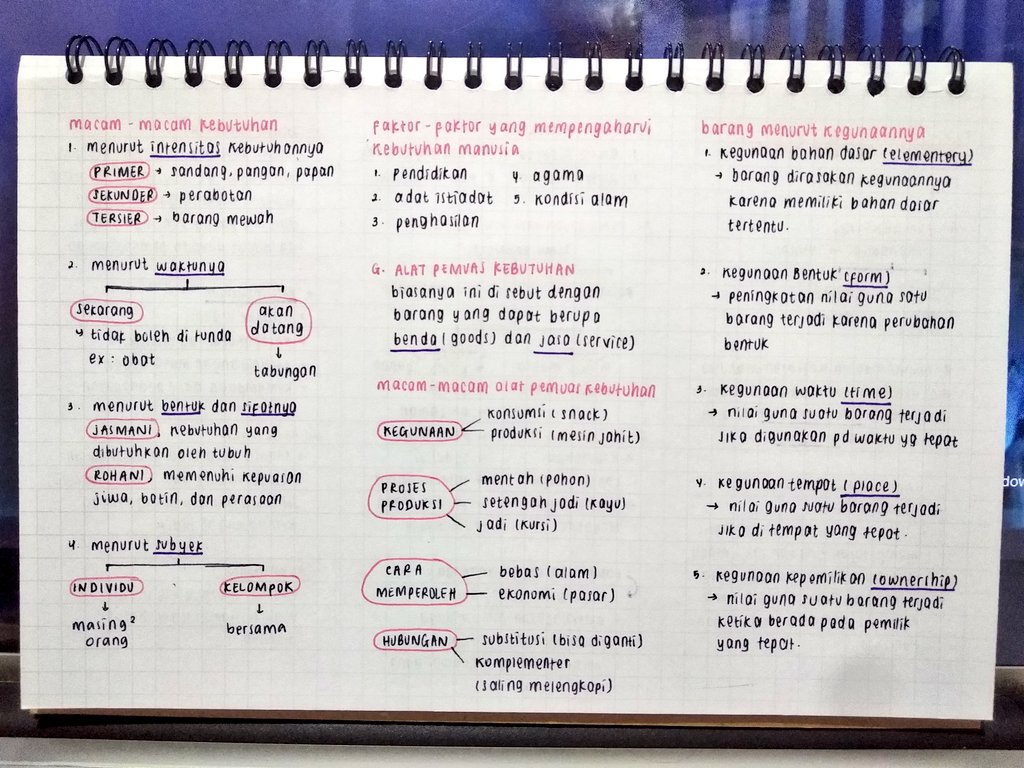 macam - macam kebutuhan
1. menurut intensitas kebutuhannya
PRIMER → sandang, pangan, papan
SEKUNDER → perabotan
TERSIER → barang mewah
2. menurut waktunya
sekarang
↳ tidak boleh di tunda
ex : obat
akan
datang
↓
tabungan
3. menurut bentuk dan sifatnya
JASMANI, kebutuhan yang
dibutuhkan oleh tubuh
ROHANI, memenuhi kepuasan
jiwa, batin, dan perasaan
4. menurut subyek
INDIVIDU
↓
masing²
orang
KELOMPOK
↓
bersama
faktor - faktor yang mempengaharui
kebutuhan manusia
1. pendidikan
2. adat istiadat
3. penghasilan
4. agama
5. kondisi alam
G. ALAT PEMUAS KEBUTUHAN
biasanya ini di sebut dengan
barang yang dapat berupa
benda (goods) dan jasa (service)
macam-macam alat pemuas kebutuhan
KEGUNAAN
konsumsi (snack)
produksi (mesin jahit)
PROSES
PRODUKSI
mentah (pohon)
setengah jadi (kayu)
jadi (kursi)
CARA
MEMPEROLEH
bebas (alam)
ekonomi (pasar)
HUBUNGAN
substitusi (bisa diganti)
komplementer
(saling melengkapi)
barang menurut kegunaannya
1. kegunaan bahan dasar (elementery)
→ barang dirasakan kegunaannya
karena memiliki bahan dasar
tertentu.
2. kegunaan Bentuk (form)
→ peningkatan nilai guna satu
barang terjadi karena perubahan
bentuk
3. kegunaan waktu (time)
→ nilai guna suatu barang terjadi
jika digunakan pd waktu yg tepat
4. kegunaan tempat (place)
→ nilai guna suatu barang terjadi
jika di tempat yang tepat.
5. kegunaan kepemilikan (ownership)
→ nilai guna suatu barang terjadi
ketika berada pada pemilik
yang tepat.